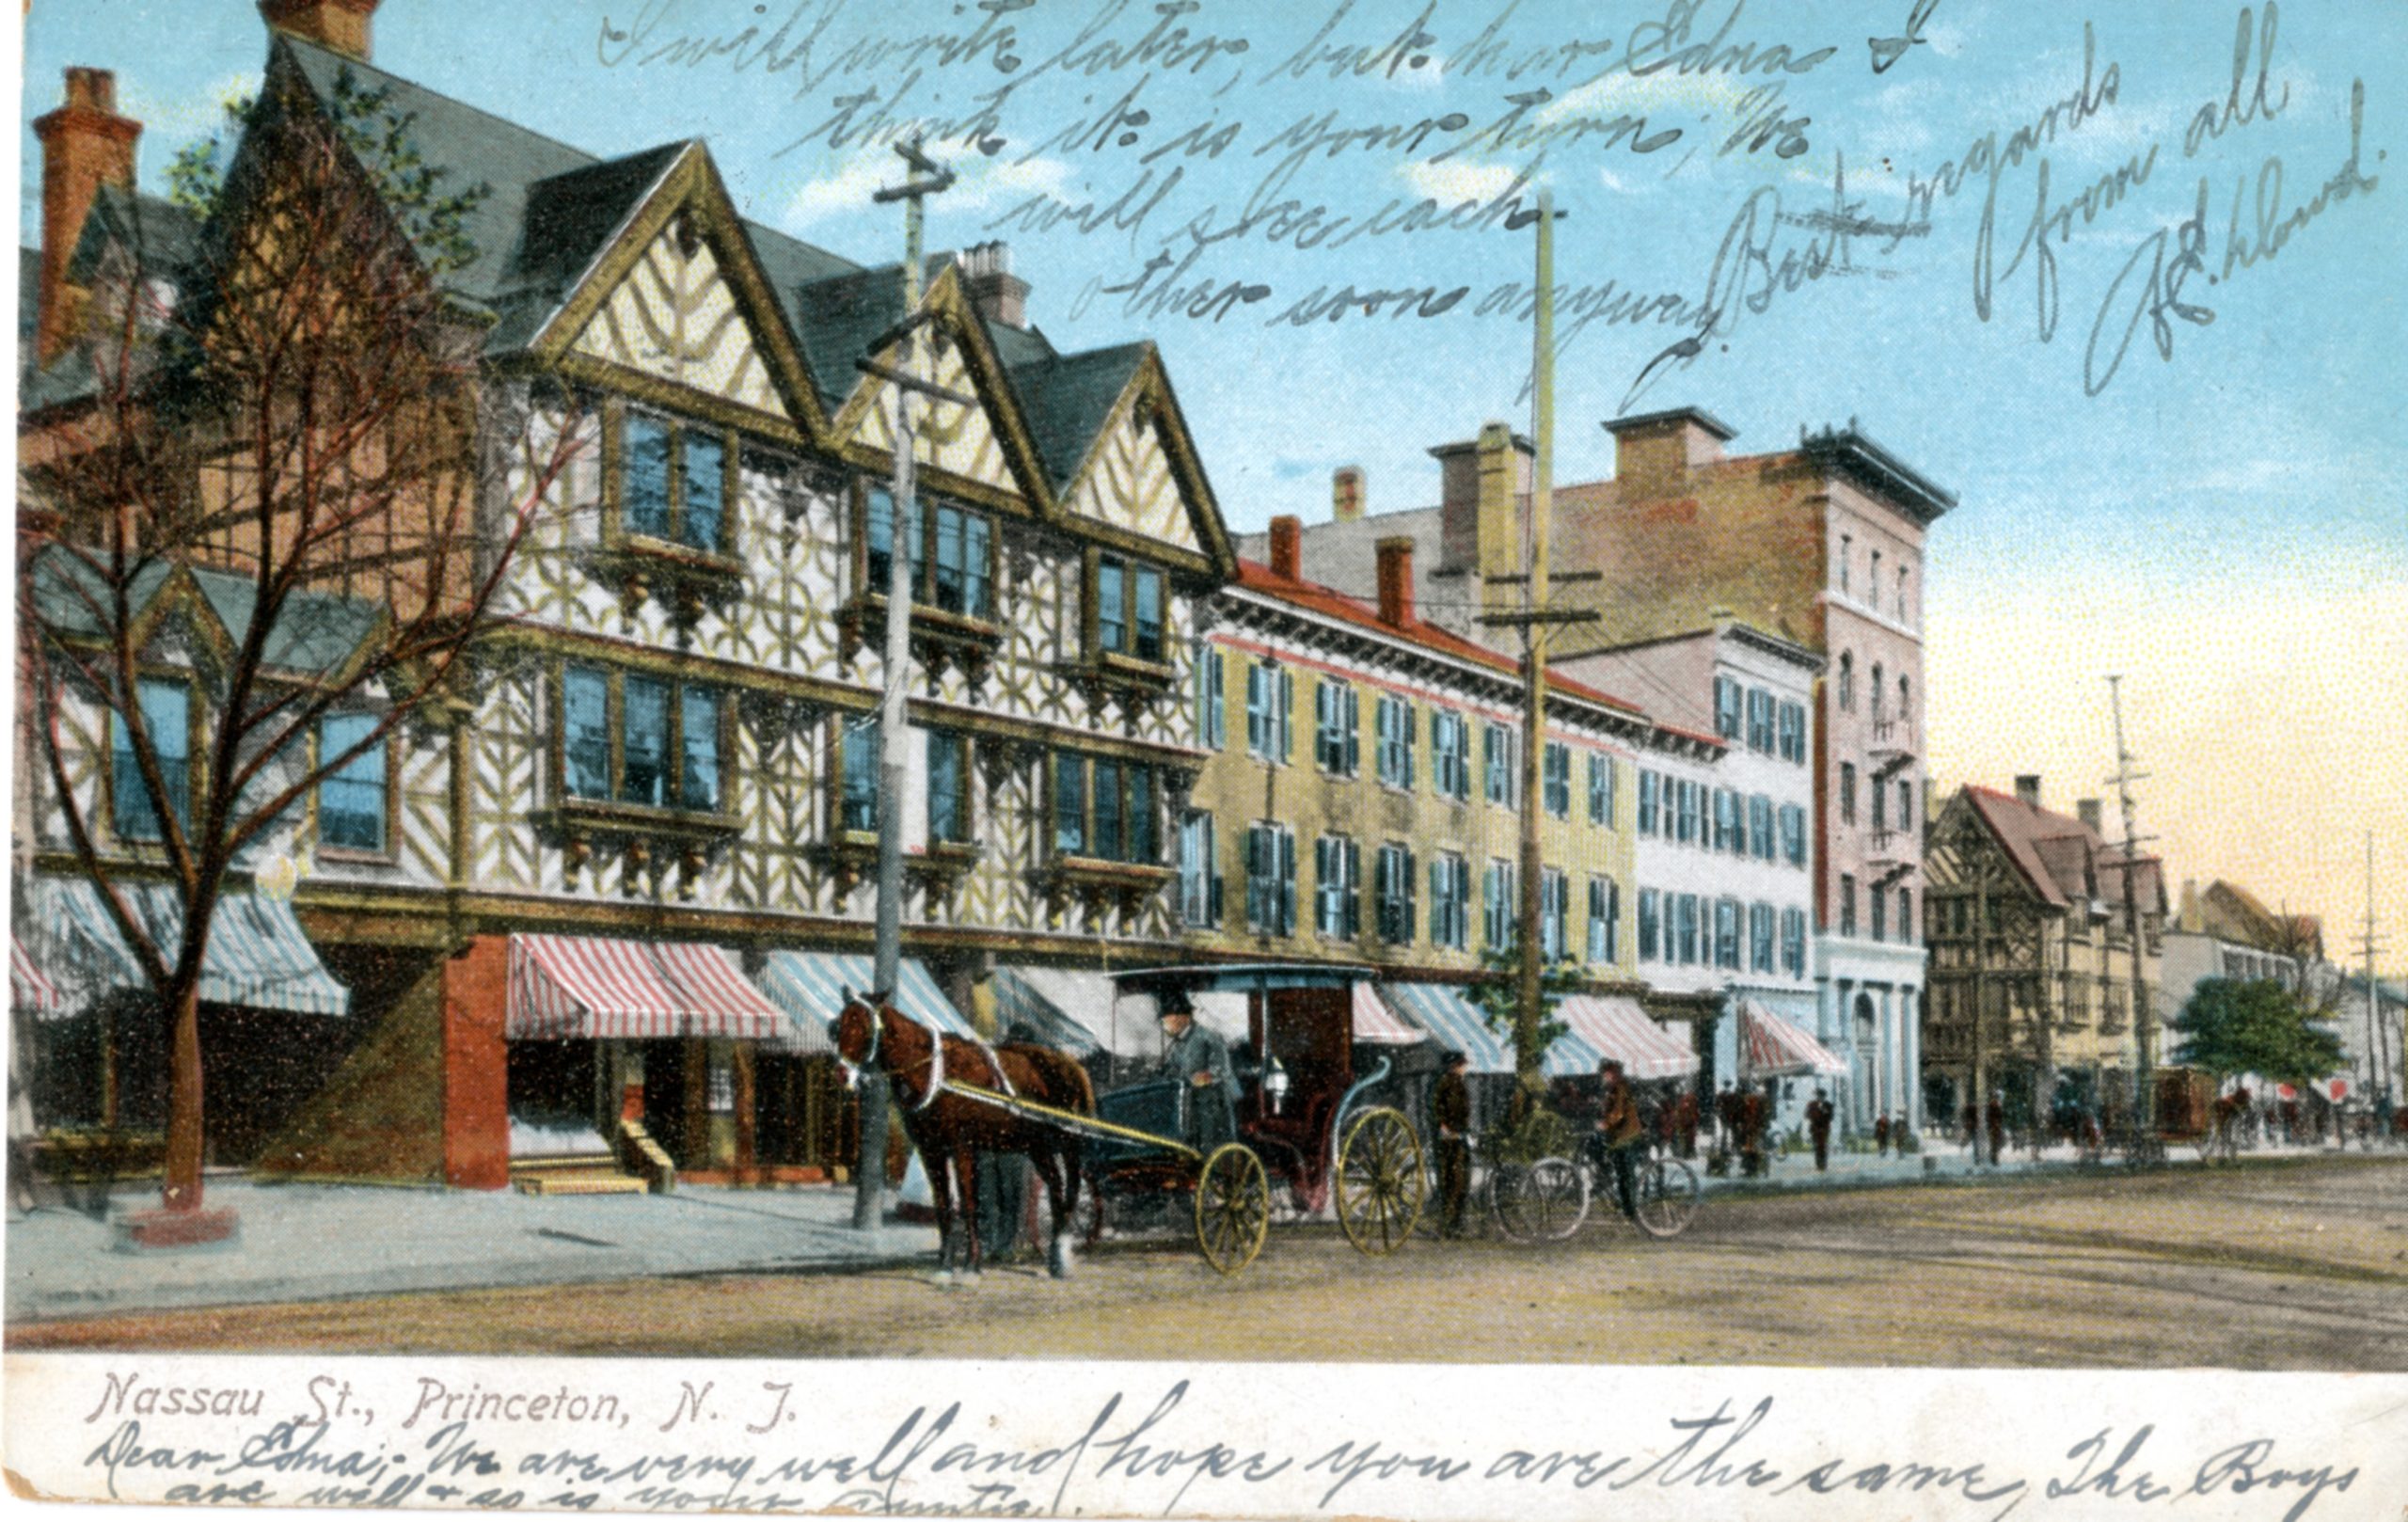 I will write later, but dear Edna I
think it is your turn, We
will see each
other soon anyway.
Best regards
from all
Nassau St., Princeton, N. J.
Dear Edna;- We are very well and hope you are the same, The Boys
are well & so is your auntie.